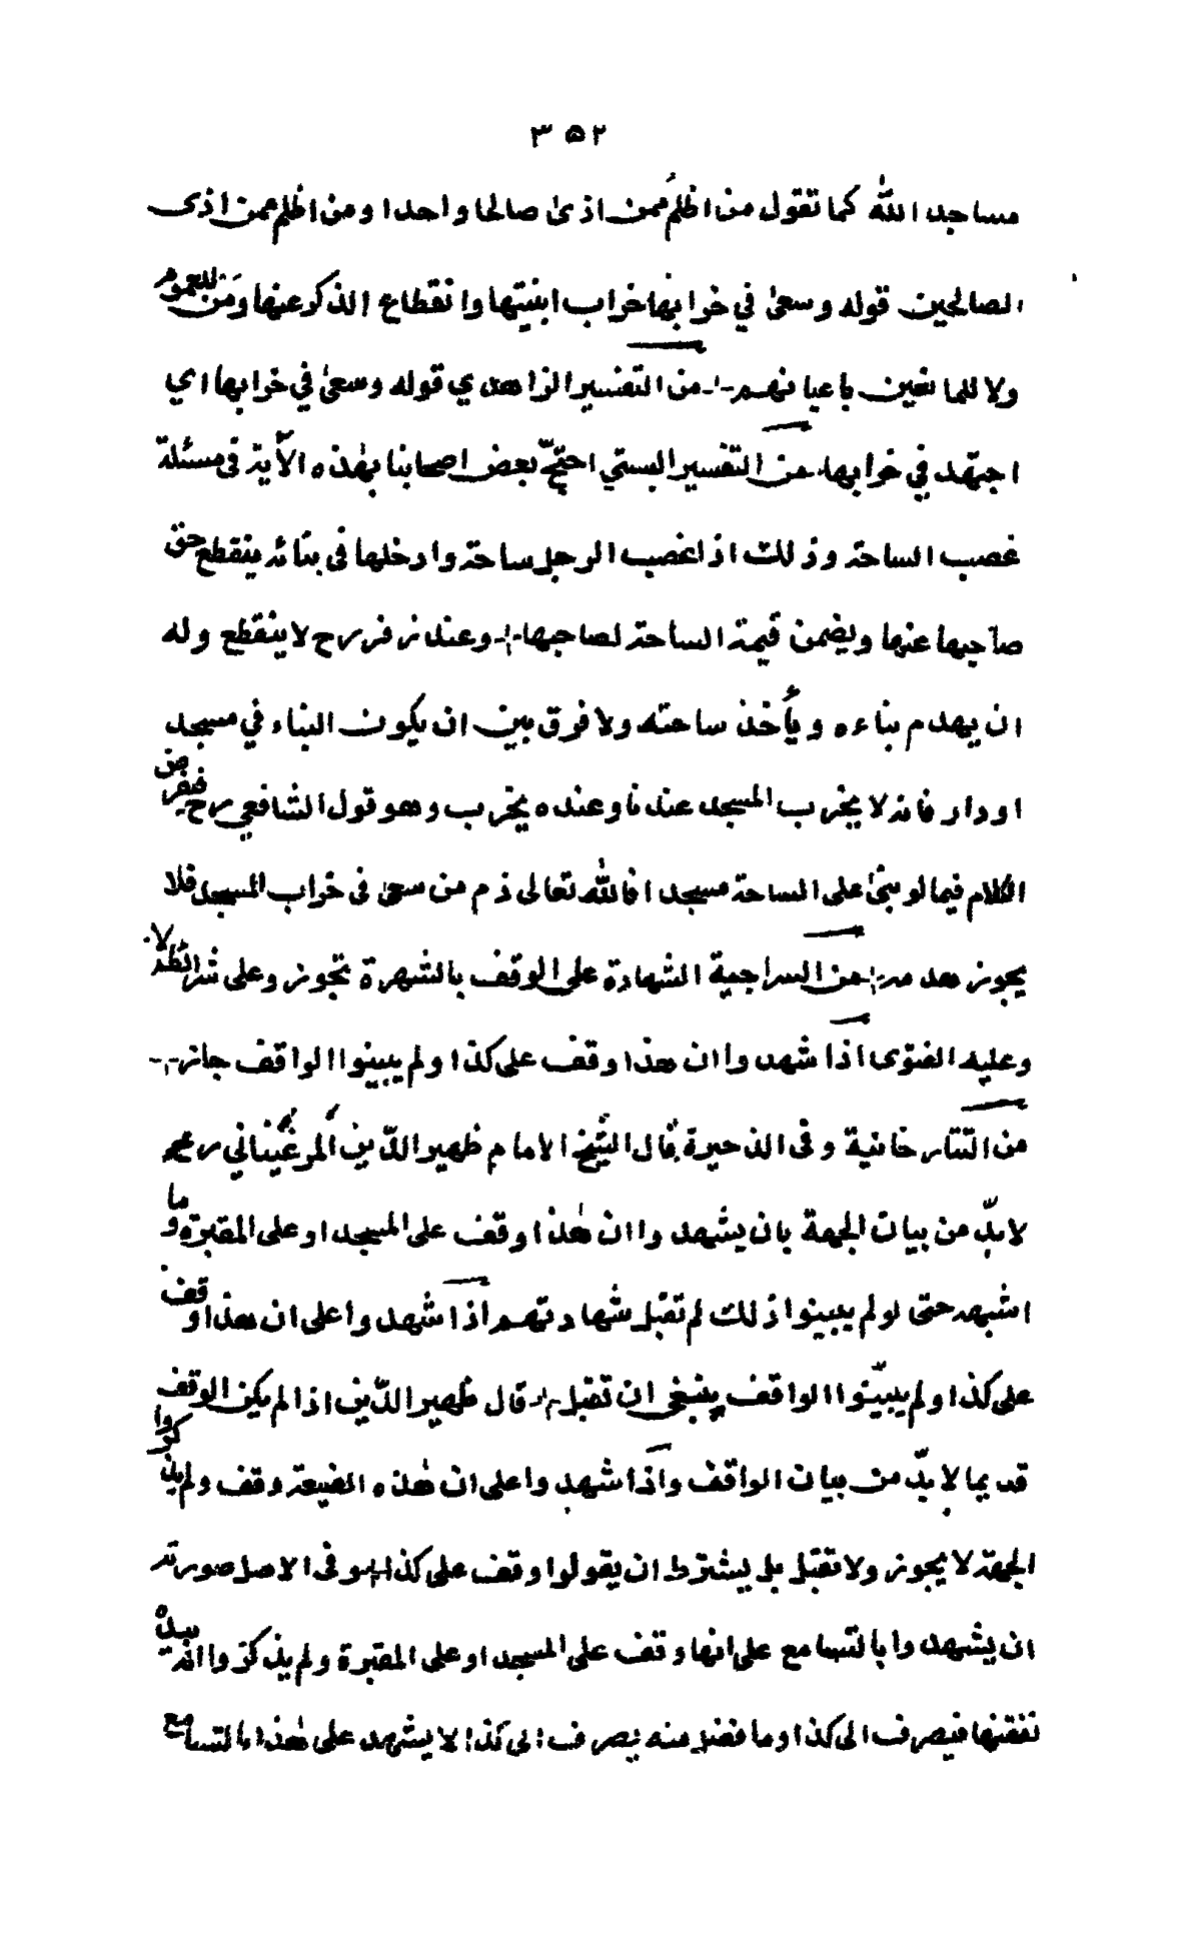 ٣٥٢
مساجد الله كما تقول من اظلم ممن اذى صالحا واحدا ومن اظلم ممن اذى
الصالحين قوله وسعى في خرابها خراب ابنيتها وانقطاع الذكر عنها ومَن للعموم
ولا للمانعين باعيانهم من التفسير الزاهدي قوله وسعى في خرابها اي
اجتهد في خرابها من التفسير البستي احتجّ بعض اصحابنا بهذه الآية فى مسئلة
غصب الساحة وذلك اذا غصب الرجل ساحة وادخلها فى بنائه ينقطع حق
صاحبها عنها ويضمن قيمة الساحة لصاحبها وعند زفر رح لا ينقطع وله
ان يهدم بناءه ويأخذ ساحته ولا فرق بين ان يكون البناء في مسجد
او دار فانه لا يخرب المسجد عندنا وعنده يخرب وهو قول الشافعي رح
الكلام فيما لو بنى على الساحة مسجدا فالله تعالى ذم من سعى فى خراب المسجد فلا
يجوز هدمه من السراجية الشهادة على الوقف بالشهرة تجوز وعلى شرائطه لا
وعليه الفتوى اذا شهدوا ان هذا وقف على كذا ولم يبينوا الواقف جاز
من التتارخانية وفى الذخيرة قال الشيخ الامام ظهير الدّين المرغيناني رحمه
لا بدّ من بيان الجهة بان يشهدوا ان هذا وقف على المسجد او على المقبرة وما
اشبهه حتى لو لم يبينوا ذلك لم تقبل شهادتهم اذا شهدوا على ان هذا وقف
على كذا ولم يبيّنوا الواقف ينبغى ان تقبل قال ظهير الدّين اذا لم يكن الوقف
قديما لا بدّ من بيان الواقف واذا شهدوا على ان هذه الضيعة وقف ولم يذكروا
الجهة لا يجوز ولا تقبل بل يشترط ان يقولوا وقف على كذا وفى الاصل صورته
ان يشهدوا بالتسامع على انها وقف على المسجد او على المقبرة ولم يذكروا انه
نفقتها فيصرف الى كذا وما فضل منه يصرف الى كذا لا يشهد على هذا بالتسامع